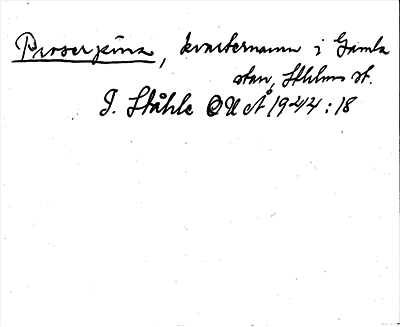 Proserpina, kvartersnamn i Gamla
stan, Sthlms st.
I. Ståhle OUÅ 1944:18